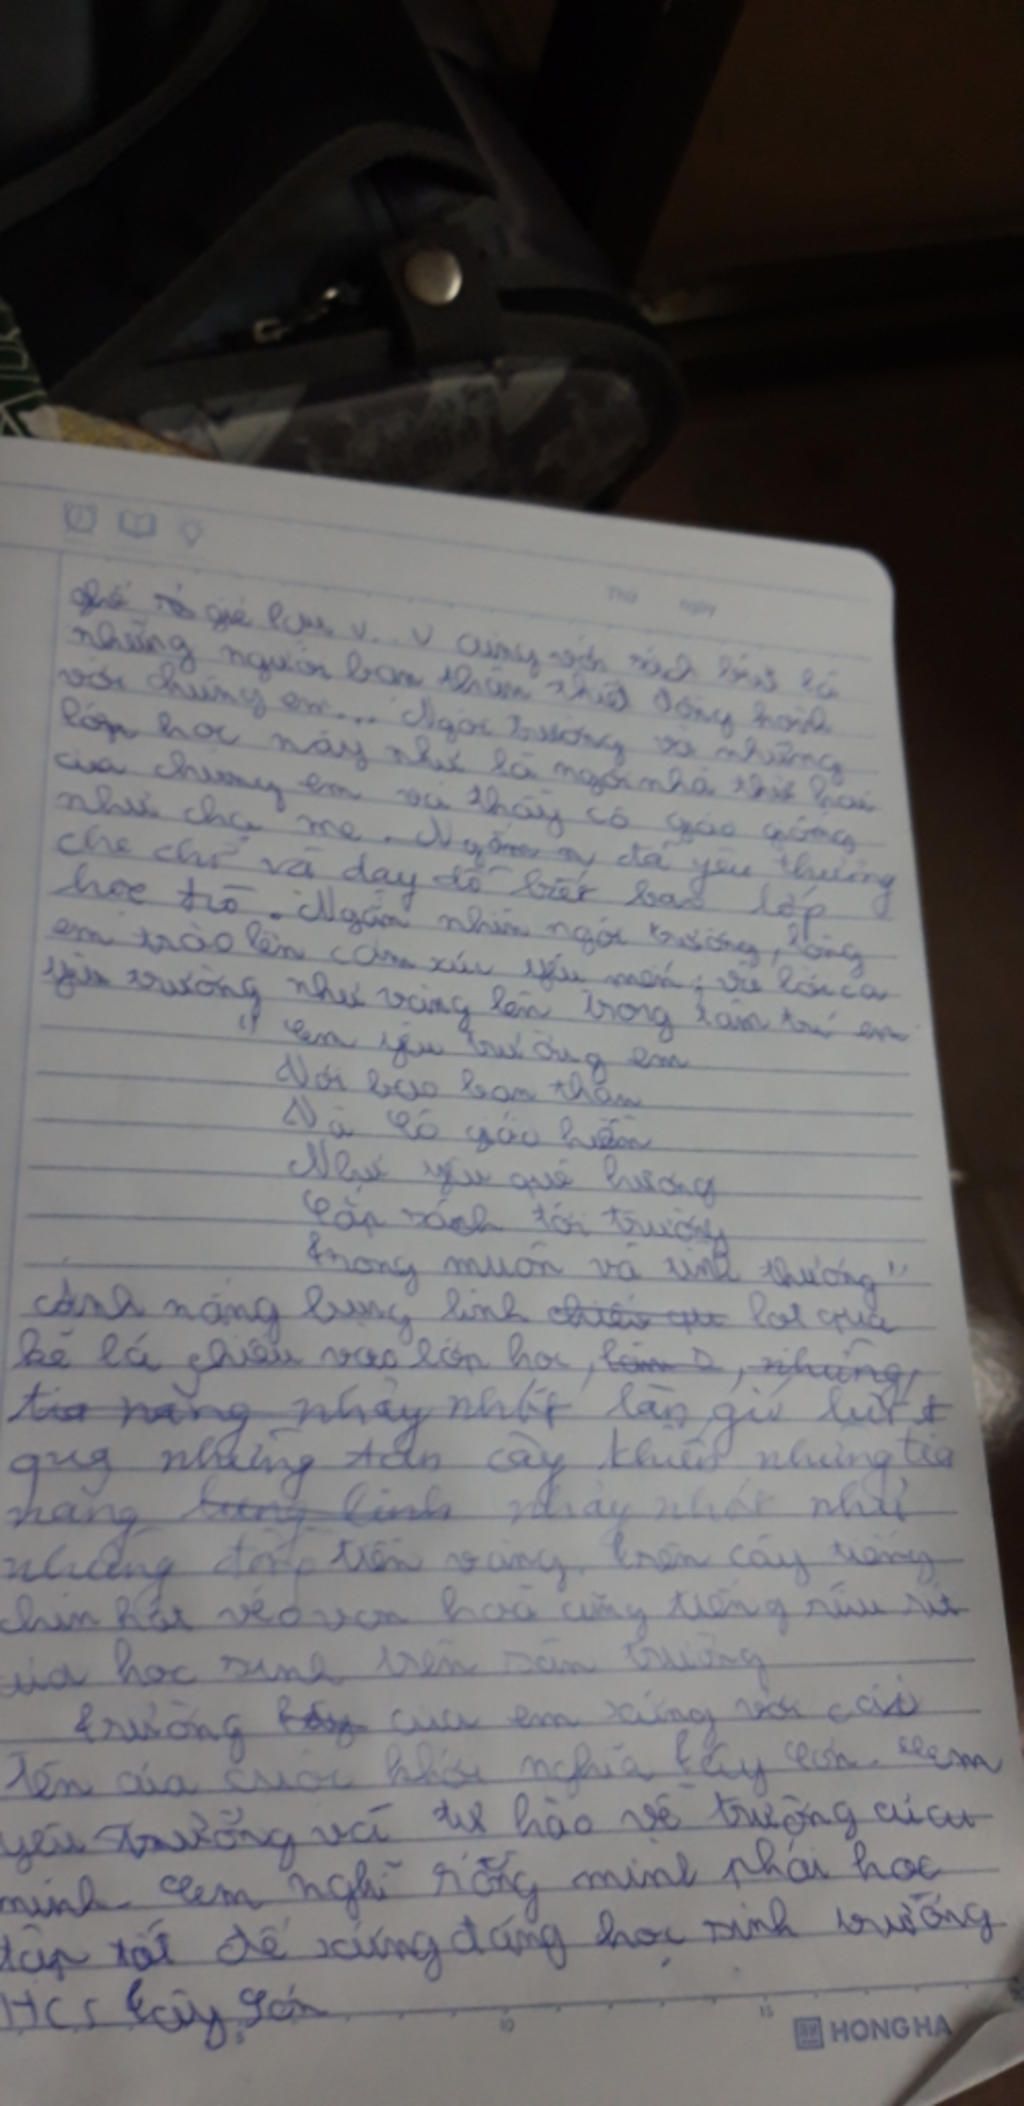 Thứ ngày
v...v cùng với sách là
những người bạn thân thiết đồng hành
với chúng em... Ngôi trường và những
lớp học này như là ngôi nhà thứ hai
của chúng em và thầy cô giáo giống
như cha mẹ. đã yêu thương
che chở và dạy dỗ biết bao lớp
học trò. Ngắm nhìn ngôi trường, lòng
em trào lên cảm xúc yêu mến, và lời ca
yêu trường như vang lên trong tâm trí em
" Em yêu trường em
Với bao bạn thân
Và cô giáo hiền
Như yêu quê hương
Cắp sách tới trường
Trong muôn vàn tình thương"
ánh nắng lung linh lọt qua
kẽ lá chiếu vào lớp học,
làn gió lướt
qua những tán cây khiến những tia
nắng nhảy nhót như
những đồng tiền vàng. trên cây tiếng
chim hót véo von hoà cùng tiếng ríu rít
của học sinh trên sân trường
Trường của em xứng với cái
tên của cuộc khởi nghĩa Tây Sơn. Em
yêu trường và tự hào về trường của
mình. Em nghĩ rằng mình phải học
tập tốt để xứng đáng học sinh trường
HCS Tây Sơn
5 10 15
HONG HA